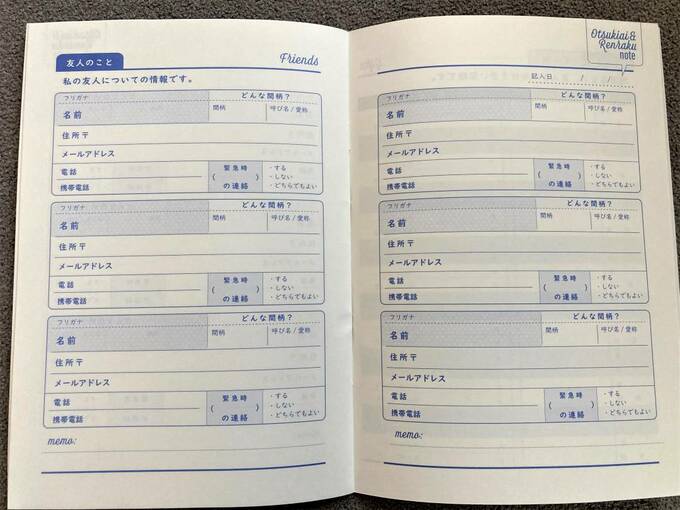 友人のこと
Friends
私の友人についての情報です。
フリガナ
どんな間柄？
名前
間柄
呼び名/愛称
住所〒
メールアドレス
電話
緊急時
・する
(　)
・しない
携帯電話
の連絡
・どちらでもよい
フリガナ
どんな間柄？
名前
間柄
呼び名/愛称
住所〒
メールアドレス
電話
緊急時
・する
(　)
・しない
携帯電話
の連絡
・どちらでもよい
フリガナ
どんな間柄？
名前
間柄
呼び名/愛称
住所〒
メールアドレス
電話
緊急時
・する
(　)
・しない
携帯電話
の連絡
・どちらでもよい
memo:
Otsukiai &
Renraku
note
記入日　/　/
フリガナ
どんな間柄？
名前
間柄
呼び名/愛称
住所〒
メールアドレス
電話
緊急時
・する
(　)
・しない
携帯電話
の連絡
・どちらでもよい
フリガナ
どんな間柄？
名前
間柄
呼び名/愛称
住所〒
メールアドレス
電話
緊急時
・する
(　)
・しない
携帯電話
の連絡
・どちらでもよい
フリガナ
どんな間柄？
名前
間柄
呼び名/愛称
住所〒
メールアドレス
電話
緊急時
・する
(　)
・しない
携帯電話
の連絡
・どちらでもよい
memo: